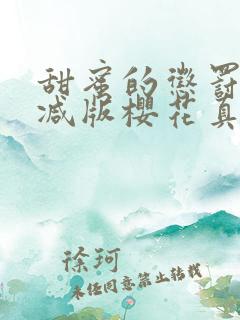 甜蜜的惩罚
减版樱花真
徐珂
未经同意禁止转载